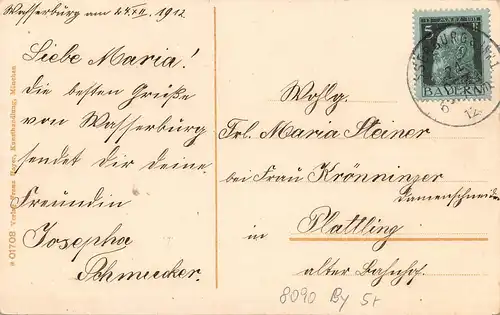 Wasserburg am 24.XII. 1912
Liebe Maria!
Die besten Grüße
von Wasserburg
sendet dir deine
Freundin
Josepha
Schmucker.
*01708 Verlag Franz Heyer, Kunsthandlung, München
5
BAYERN
WASSERBURG
12
Wohlg.
Frl. Maria Steiner
bei Frau Krönninger
Damenschnei
in Plattling
alter Bahnhof.
8090 By 5r